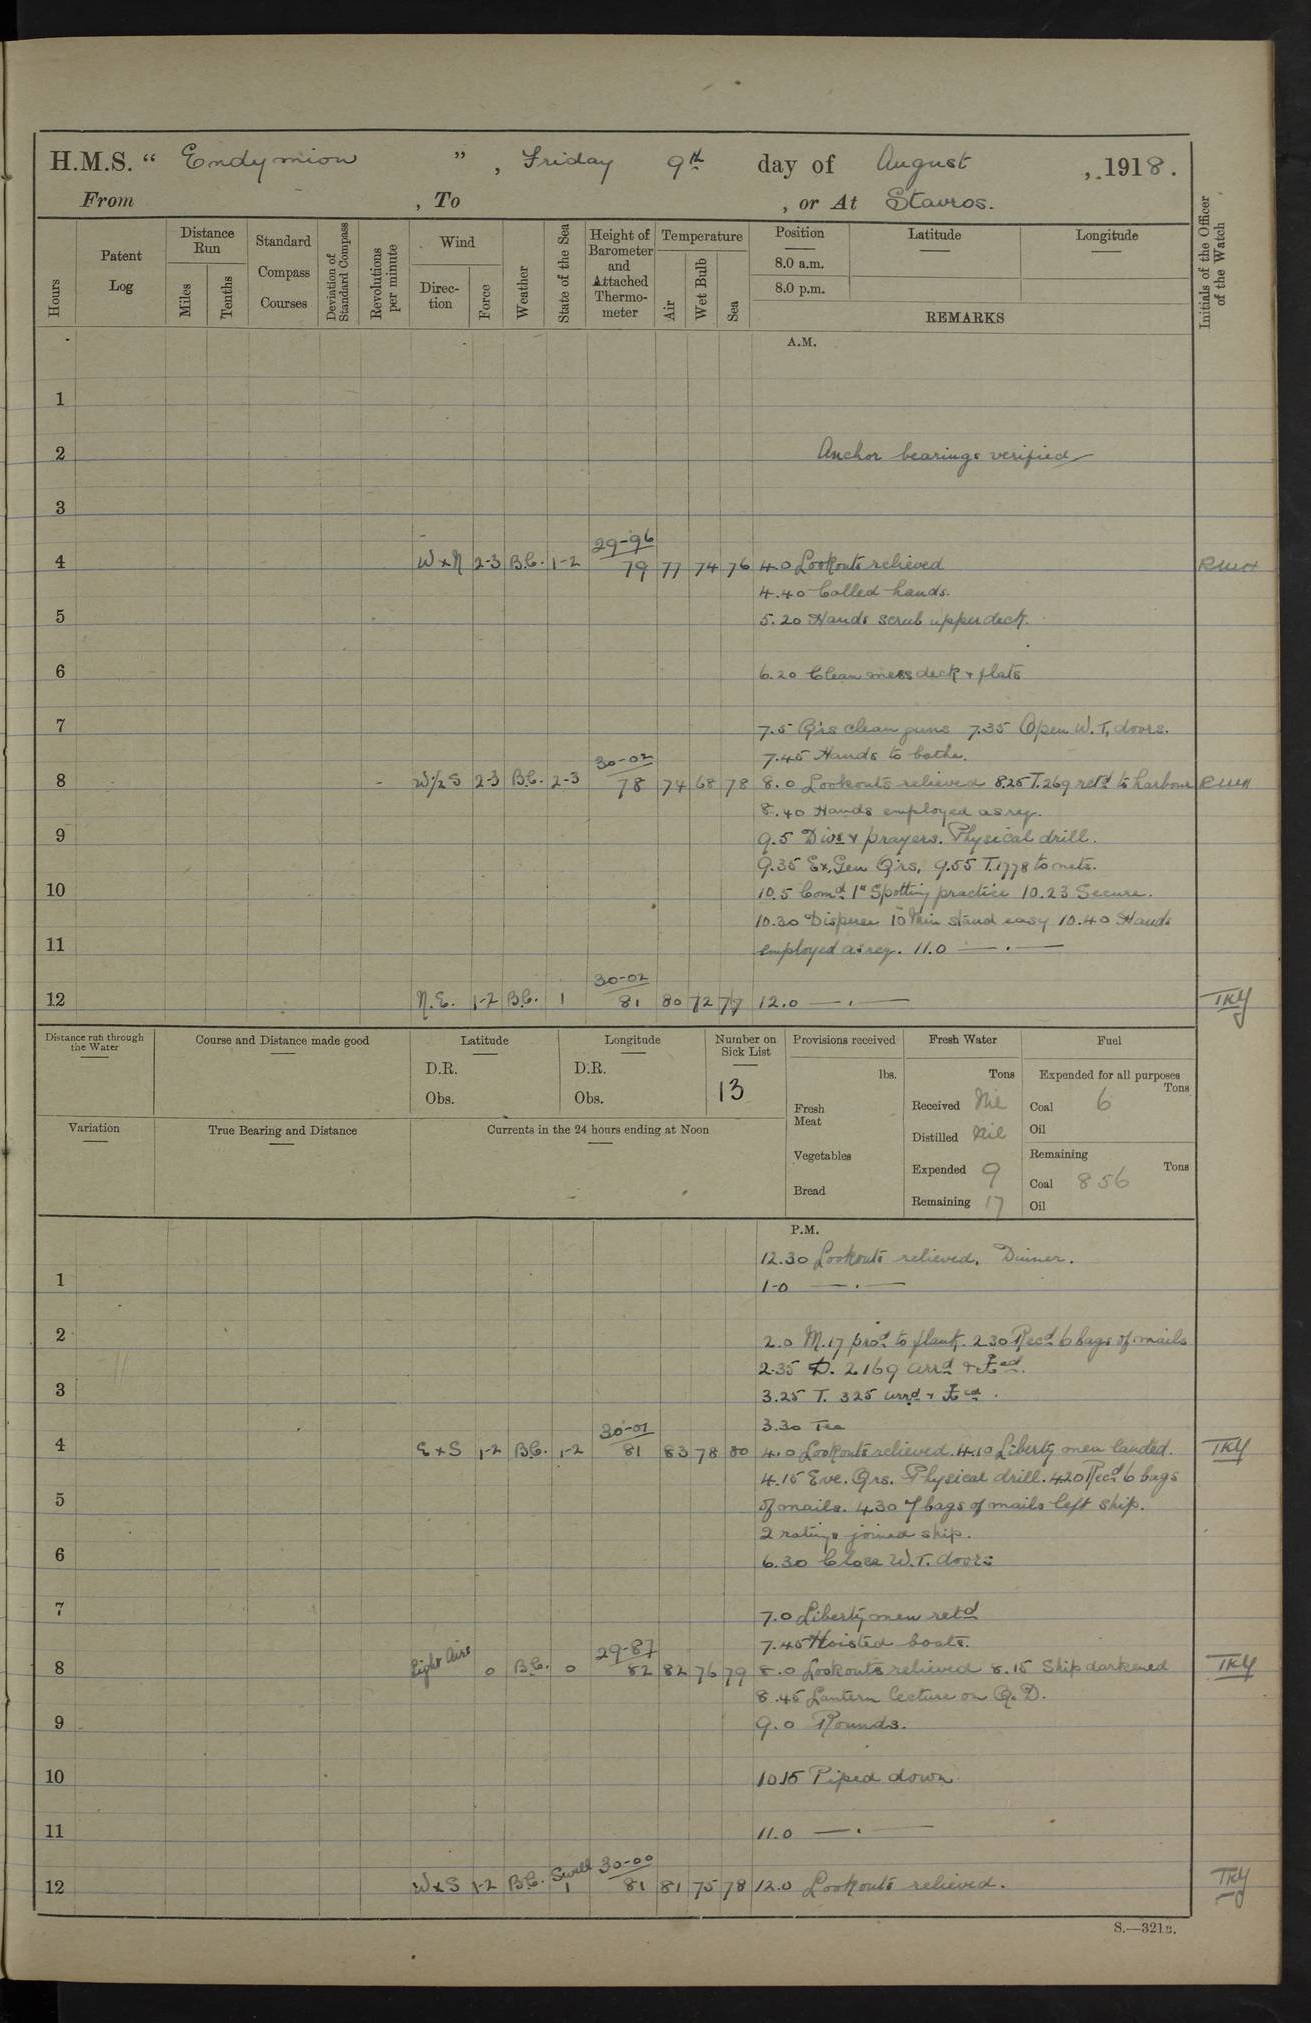 H.M.S. “ Endymion ” , Friday 9th day of August , 1918.
From , To , or At Stavros.
Hours
Patent Log
Distance Run
Miles
Tenths
Standard Compass Courses
Deviation of Standard Compass
Revolutions per minute
Wind
Direction
Force
Weather
State of the Sea
Height of Barometer and Attached Thermometer
Temperature
Air
Wet Bulb
Sea
Position
8.0 a.m.
8.0 p.m.
Latitude
Longitude
REMARKS
Initials of the Officer of the Watch
A.M.
1
2 Anchor bearings verified
3
29-96
4 W x N 2-3 B.C. 1-2 79 77 74 76 4.0 Lookouts relieved
4.40 Called hands.
5 5.20 Hands scrub upper deck.
6 6.20 Clean mess deck & flats
7 7.5 Q'rs clean guns 7.35 Open W.T. doors.
30-02 7.45 Hands to bathe.
8 W½S 2-3 B.C. 2-3 78 74 68 78 8.0 Lookouts relieved 8.25 T.269 retd to harbour
8.40 Hands employed as req.
9 9.5 Divs & prayers. Physical drill.
9.35 Ex. Gen Q'rs. 9.55 T.1778 to nets.
10 10.5 Comd 1" Spotting practice 10.23 Secure.
10.30 Disperse 10 Min stand easy 10.40 Hands
11 employed as req. 11.0 — . —
30-02
12 N.E. 1-2 B.C. 1 81 80 72 77 12.0 — . — TKY
Distance run through the Water
Course and Distance made good
Latitude
D.R.
Obs.
Longitude
D.R.
Obs.
Number on Sick List
13
Provisions received
lbs.
Fresh Meat
Vegetables
Bread
Fresh Water
Tons
Received Nil
Distilled Nil
Expended 9
Remaining 17
Fuel
Expended for all purposes
Tons
Coal 6
Oil
Remaining
Tons
Coal 856
Oil
Variation
True Bearing and Distance
Currents in the 24 hours ending at Noon
P.M.
12.30 Lookouts relieved. Dinner.
1 1-0 — . —
2 2.0 M.17 procd to flank. 2.30 Recd 6 bags of mails
2.35 D. 2169 arrd &
3 3.25 T. 325 arrd &
30-01 3.30 Tea
4 E x S 1-2 B.C. 1-2 81 83 78 80 4.0 Lookouts relieved. 4.10 Liberty men landed. TKY
4.15 Eve. Qrs. Physical drill. 4.20 Recd 6 bags
5 of mails. 4.30 7 bags of mails left ship.
2 ratings joined ship.
6 6.30 Close W.T. doors
7 7.0 Liberty men retd
29-87 7.45 Hoisted boats.
8 Light Airs 0 B.C. 0 82 82 76 79 8.0 Lookouts relieved 8.15 Ship darkened TKY
8.45 Lantern lecture on Q.D.
9 9.0 Rounds.
10 10.15 Piped down
11 11.0 — . —
Swell 30-00
12 W x S 1-2 B.C. 1 81 81 75 78 12.0 Lookouts relieved. TKY
S.—321B.